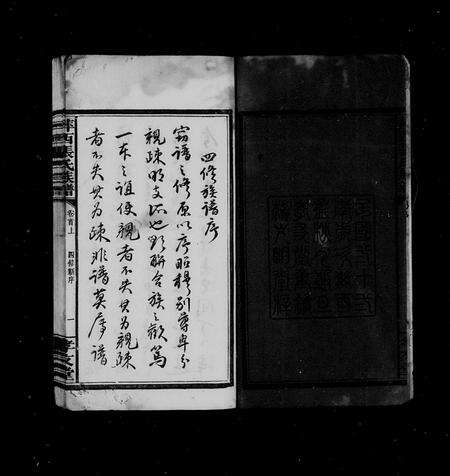 四修族譜序
竊譜之修原以序昭穆別尊卑分
親疎明支派也聯合族之歡篤
一本之誼使親者不失其為親疎
者不失其為疎非譜莫譜
西氏族譜
卷首上
四修新序
一
堂